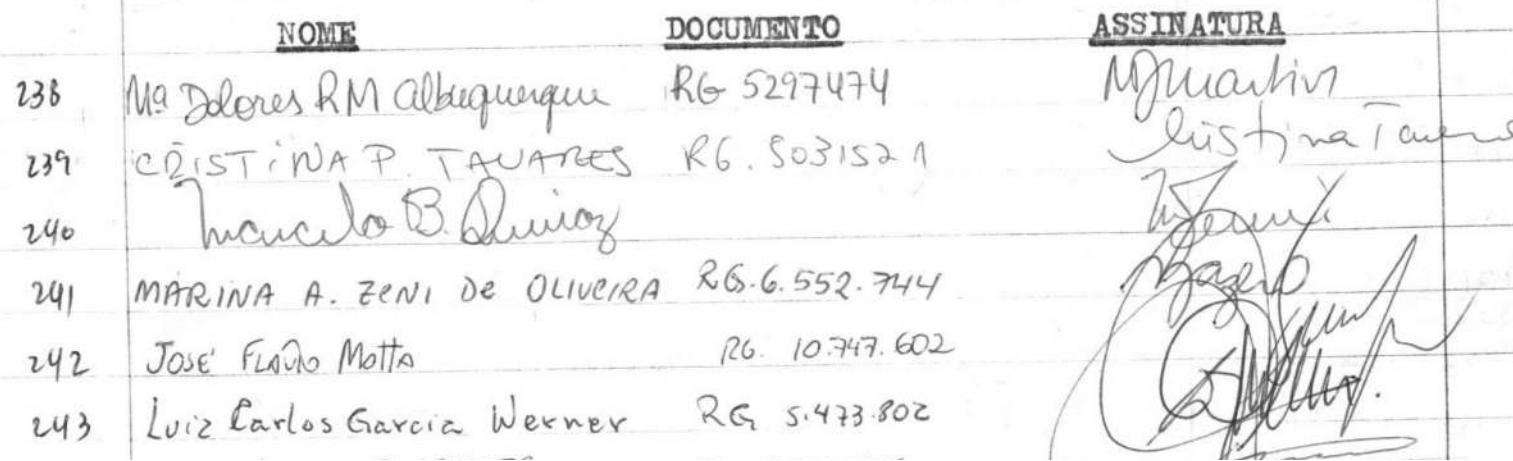 NOME DOCUMENTO ASSINATURA
238 Mª Dolores RM Albuquerque RG 5297474
239 CRISTINA P. TAVARES RG. 5031521 Cristina Tavares
240 Marcelo B. Queiroz
241 MARINA A. ZENI DE OLIVEIRA RG. 6.552.744
242 JOSÉ FLAVIO MOTTA RG. 10.747.602
243 Luiz Carlos Garcia Werner RG 5.473.802